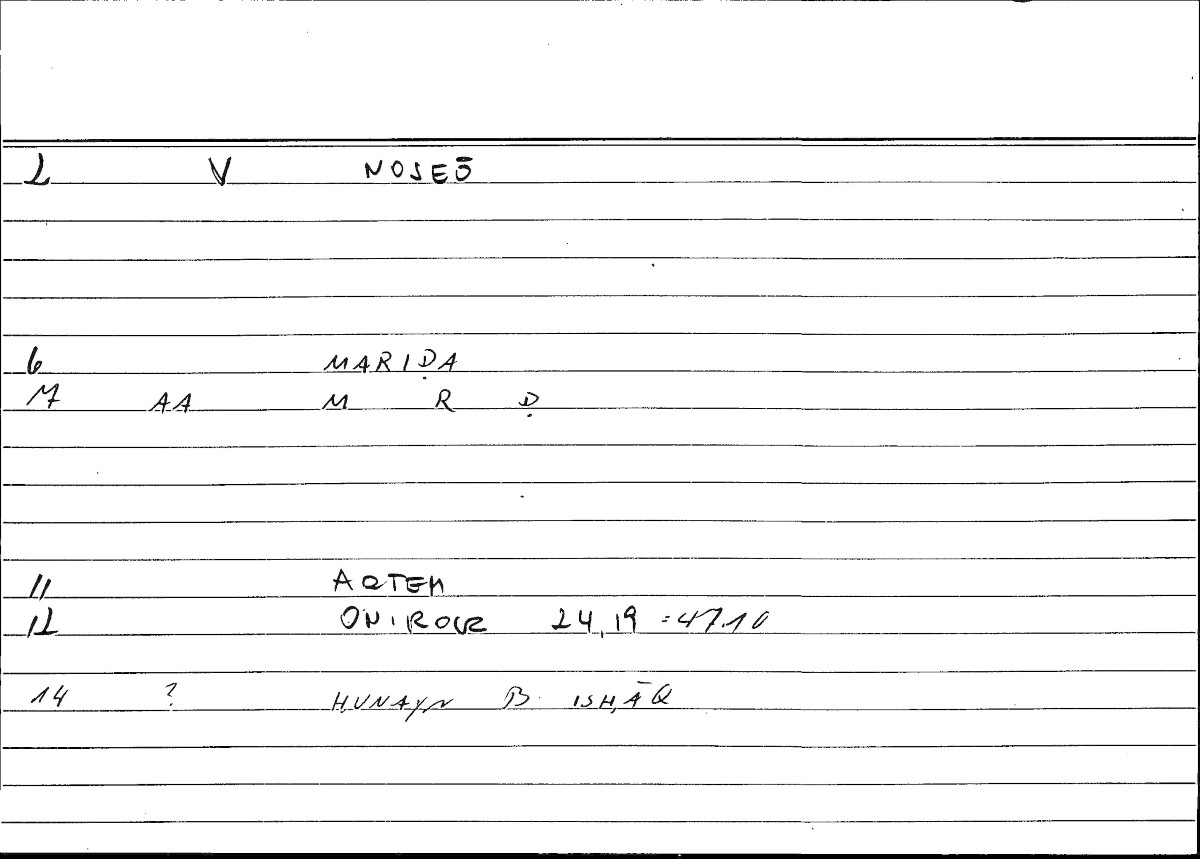 2 V NOSEŌ
6 MARIḌA
7 AA M R Ḍ
11 ARTEM
12 ONIROCR 24,19 = 47.10
14 ? ḤUNAYN B. ISḤĀQ